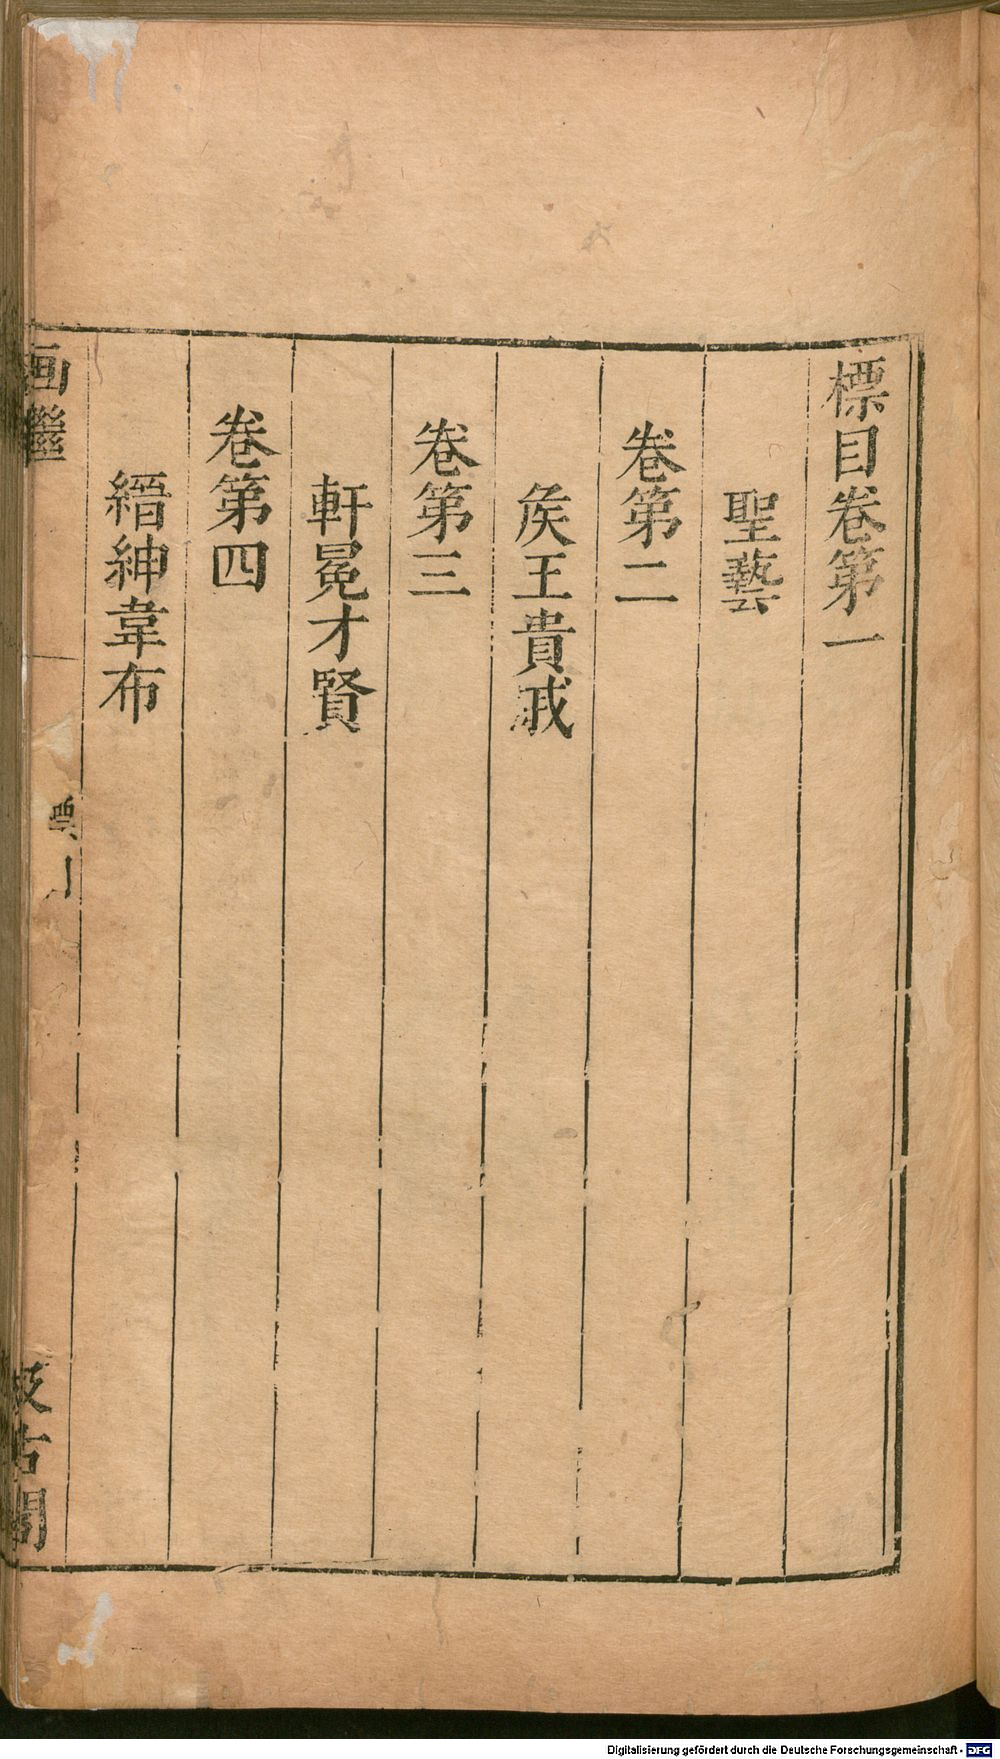 標目卷第一
聖藝
卷第二
矦王貴戚
卷第三
軒冕才賢
卷第四
縉紳韋布
画繼
汲古閣
Digitalisierung gefördert durch die Deutsche Forschungsgemeinschaft - DFG